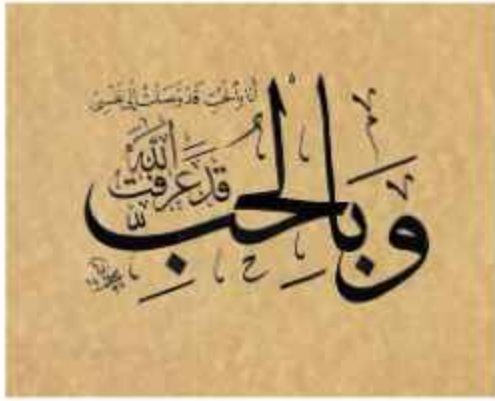 أنا بالحب قد وصلت إلى نفسي
وَبِالحُبِّ
قَد عَرَفتُ
اللهَ